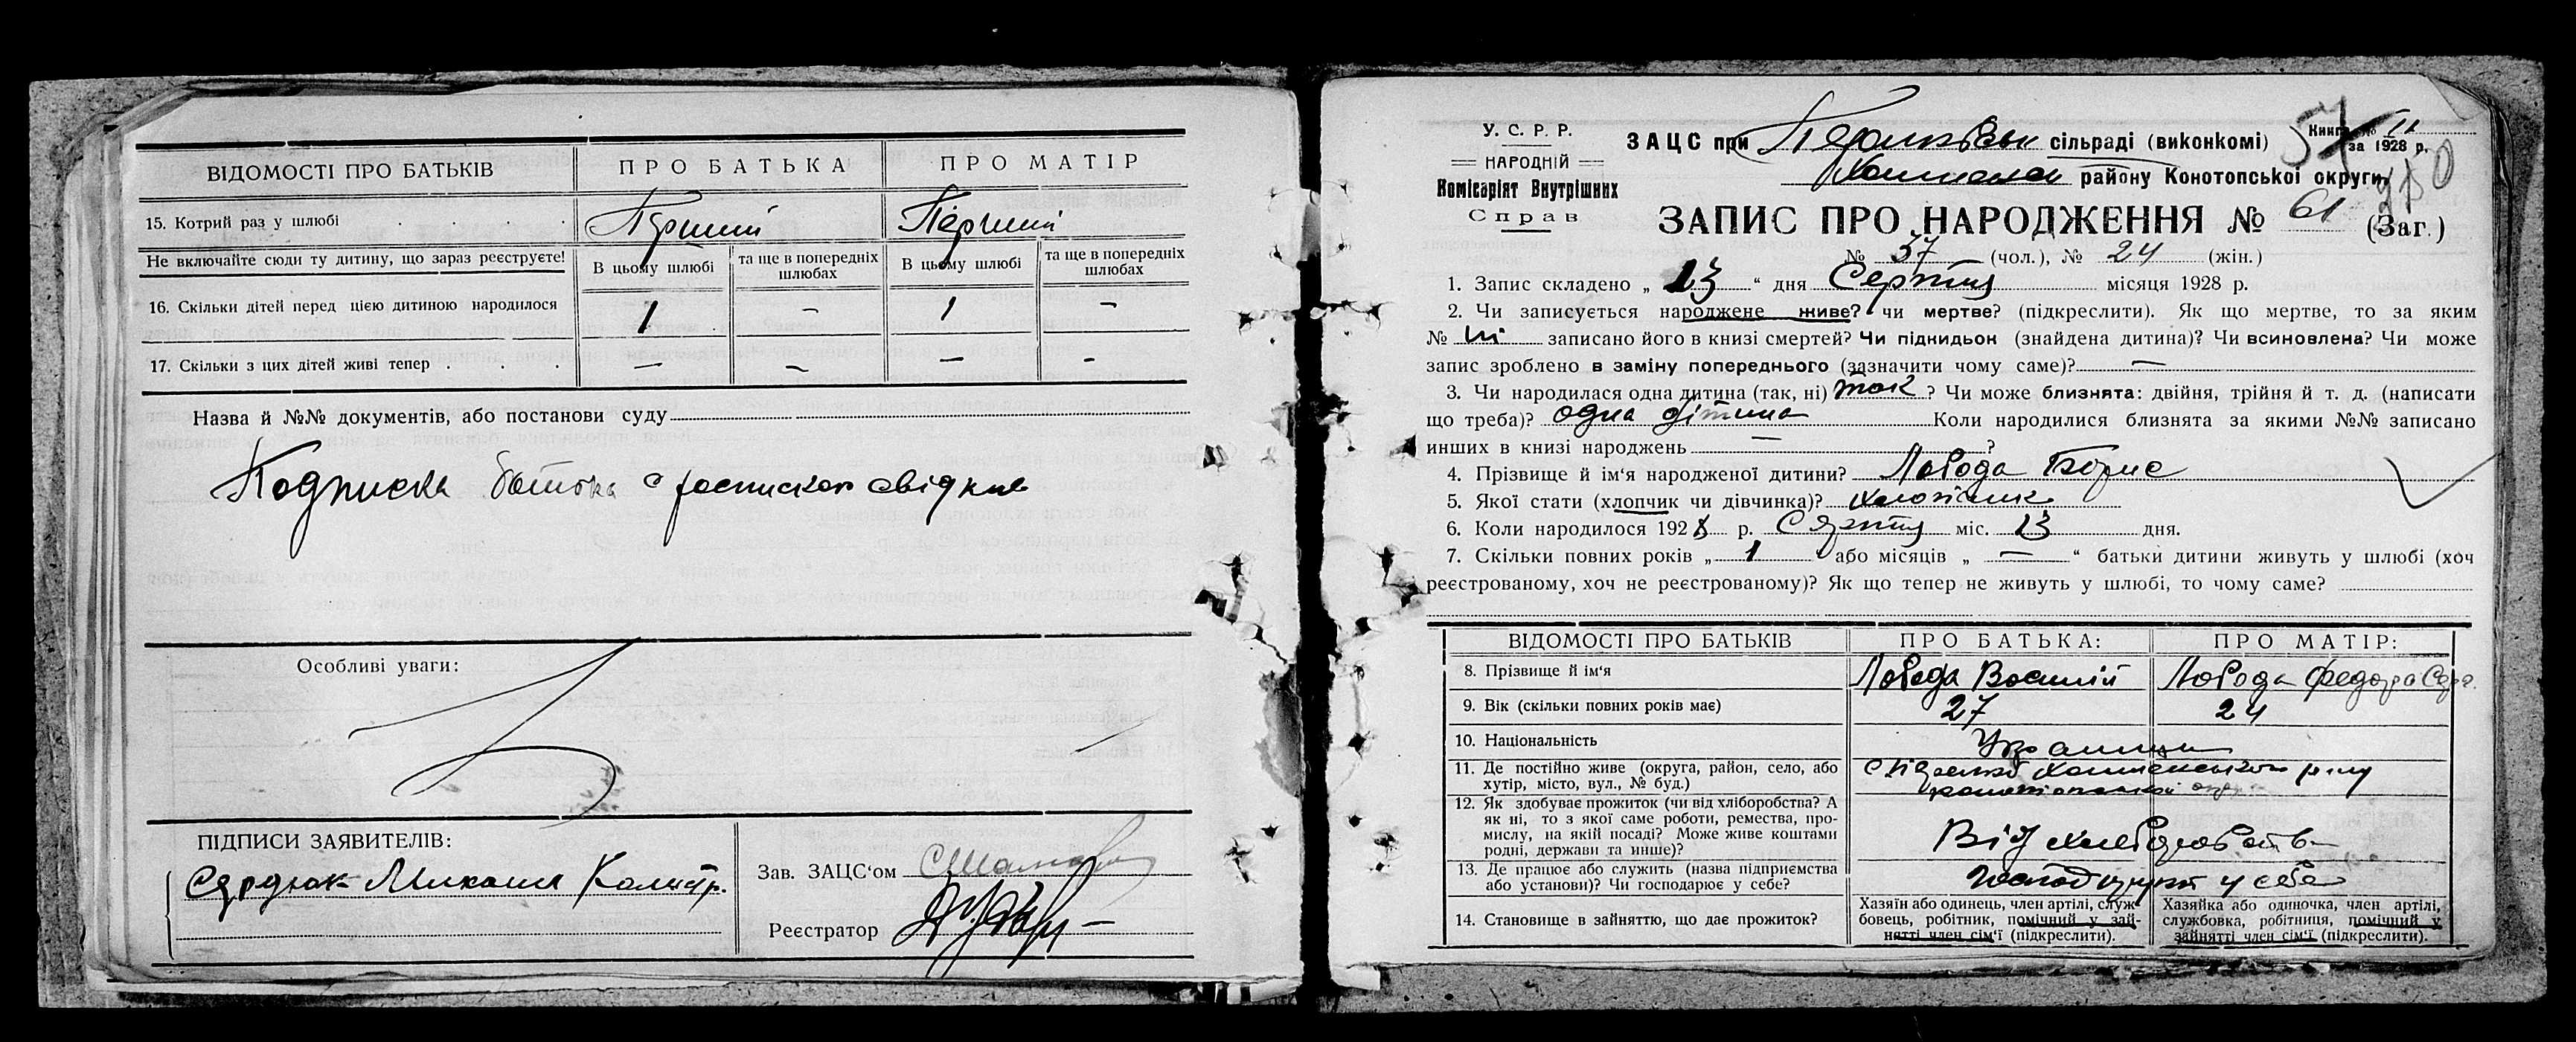 ВІДОМОСТІ ПРО БАТЬКІВ
ПРО БАТЬКА
ПРО МАТІР
15. Котрий раз у шлюбі . . . .
Перший
Перший
Не включайте сюди ту дитину, що зараз реєструєте!
В цьому шлюбі
та ще в попередніх шлюбах
В цьому шлюбі
та ще в попередніх шлюбах
16. Скільки дітей перед цією дитиною народилося
1 — 1 —
17. Скільки з цих дітей живі тепер . . .
— — — —
Назва й №№ документів, або постанови суду
Подписка батька с роспискою свідків
Особливі уваги:
ПІДПИСИ ЗАЯВИТЕЛІВ:
Сердюк Михаил
Зав. ЗАЦС'ом
Реєстратор
У. С. Р. Р.
НАРОДНІЙ
Комісаріят Внутрішних
Справ
ЗАЦС при сільраді (виконкомі)
Книга № II
за 1928 р.
57
району Конотопської округи
ЗАПИС ПРО НАРОДЖЕННЯ № 61 (Заг.)
№ 37 (чол.), № 24 (жін.)
1. Запис складено „ 23 “ дня Серпня місяця 1928 р.
2. Чи записується народжене живе? чи мертве? (підкреслити). Як що мертве, то за яким
№ ні записано його в книзі смертей? Чи підкидьок (знайдена дитина)? Чи всиновлена? Чи може
запис зроблено в заміну попереднього (зазначити чому саме)? —
3. Чи народилася одна дитина (так, ні) так ? Чи може близнята: двійня, трійня й т. д. (написати
що треба)? одна дитина Коли народилися близнята за якими №№ записано
инших в книзі народжень — ?
4. Прізвище й ім'я народженої дитини? Лобода Борис
5. Якої стати (хлопчик чи дівчинка)? хлопчик
6. Коли народилося 1928 р. Серпня міс. 13 дня.
7. Скільки повних років „ 1 “ або місяців „ — “ батьки дитини живуть у шлюбі (хоч
реєстрованому, хоч не реєстрованому)? Як що тепер не живуть у шлюбі, то чому саме?
ВІДОМОСТІ ПРО БАТЬКІВ
ПРО БАТЬКА:
ПРО МАТІР:
8. Прізвище й ім'я
Лобода Василій
Лобода Федора
9. Вік (скільки повних років має)
27
24
10. Національність
11. Де постійно живе (округа, район, село, або
хутір, місто, вул., № буд.)
12. Як здобуває прожиток (чи від хліборобства? А
як ні, то з якої саме роботи, ремества, про-
мислу, на якій посаді? Може живе коштами
родні, держави та инше)?
Від хліборобств
13. Де працює або служить (назва підприємства
або установи)? Чи господарює у себе?
господарюют у себе
14. Становище в зайняттю, що дає прожиток?
Хазяїн або одинець, член артілі, служ-
бовець, робітник, помічний у зай-
нятті член сім'ї (підкреслити).
Хазяйка або одиночка, член артілі,
службовка, робітниця, помічний у
зайнятті член сім'ї (підкреслити).